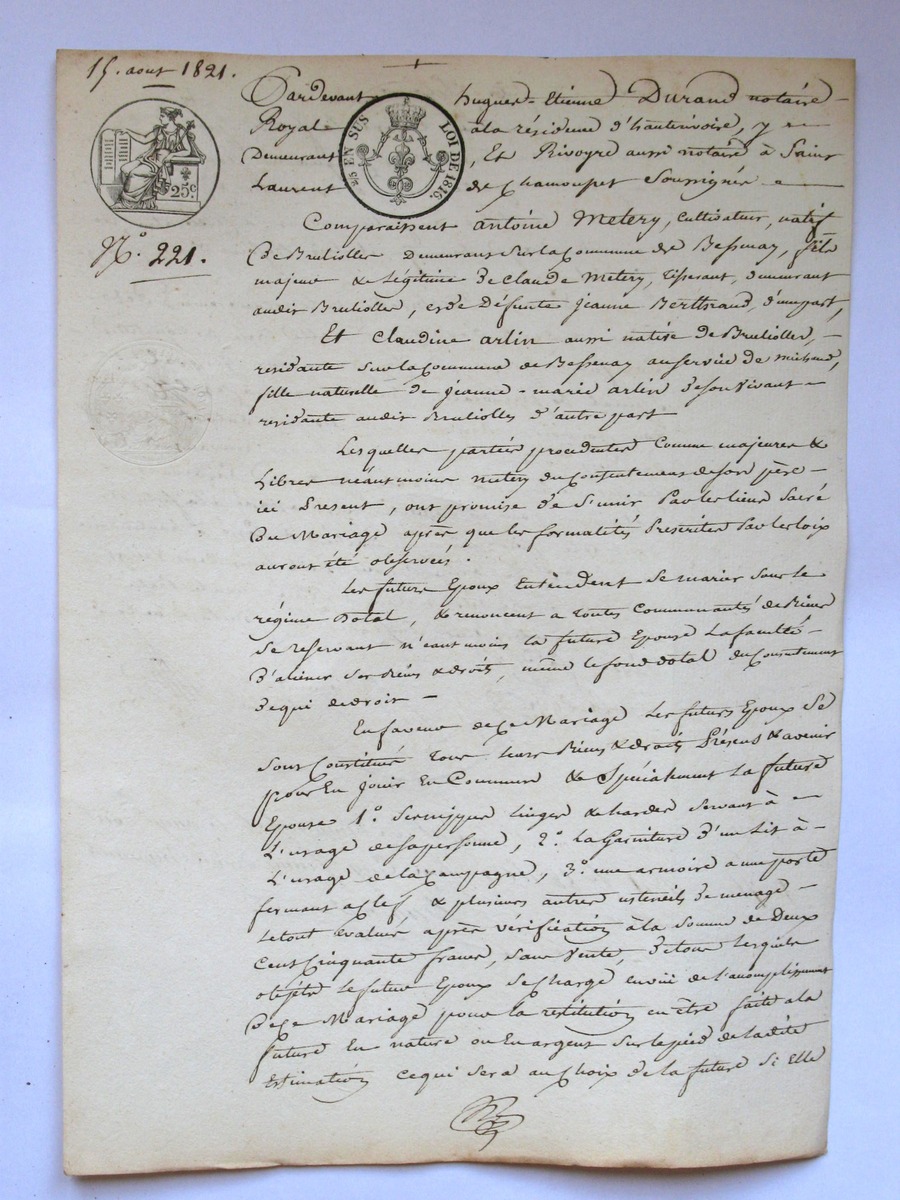 15. aout 1821.
Pardevant hugues-Etienne Durand notaire
Royal à la résidence d'hauterivoire, y
Demeurant, Et Rivoyre aussi notaire à Saint
Laurent de Chamousset Soussignés
EN SUS
LOI DE 1816.
25c
N.° 221.
Comparaissent antoine Metery, cultivateur, natif
De Bruliolles Demeurant sur la Commune de Bessenay, fils
majeur & Légitime de Claude Metery, tisserant, demeurant
audit Bruliolles, et de Défunte Jeanne Berthaud, d'une part,
Et Claudine arlin aussi native de Bruliolles,
residante sur la Commune de Bessenay au service de michaud,
fille naturelle de Jeanne-marie arlin de son vivant
residante audit Bruliolles d'autre part
Lesquelles parties procedentes Comme majeures &
Libres néantmoins metery du Consentement de son père
ici Present, ont promise de S'unir Par les lieus Sacré
Du Mariage après que les formalités Prescrites Par les loix
auront été observées.
Les future Epoux Entendent se marier sous le
régime Dotal, & renoncent a toutes Communautés de Biens
Se reservant n'eantmoins la future Epouse La faculté
D'aliéner ses Biens & droits, même le fond dotal du Consentement
de qui de droit
En faveur de Ce Mariage Les futurs Epoux Se
Sont Constitués tous leurs Biens & droits Présens & avenir
pour En Jouir En Commun & Spécialement La future
Epouse 1.° Linges & hardes servant à
L'usage de sa personne, 2.° La Garniture D'un Lit à
L'usage de la Campagne, 3.° une armoire a une porte
fermant a Clef, & plusieurs autres ustencils De menage
Le tout évalué après vérification à la Somme de Deux
Cent Cinquante francs, sans vente, De tous Lesquels
objets le futur Epoux Se Charge envüe de l'acomplissement
De Ce Mariage pour la restitution en être faite a la
future En nature ou En argent Sur le pied de ladite
Estimation ce qui sera au Choix de la future Si Elle